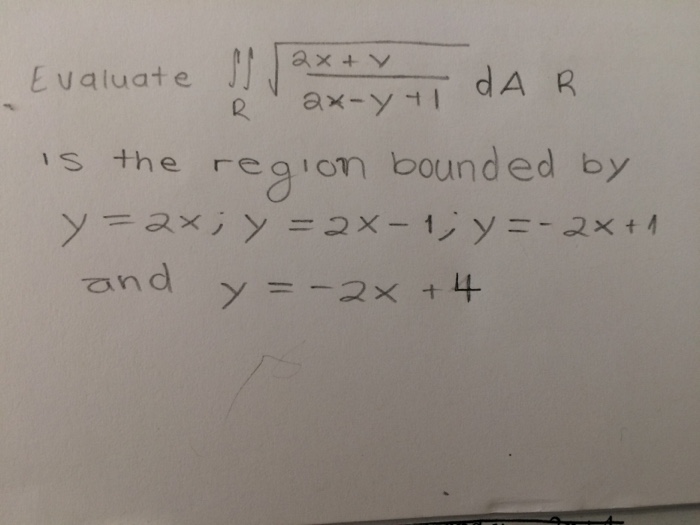 Evaluate ∬_R √((2x+y)/(2x-y+1)) dA R
is the region bounded by
y = 2x; y = 2x-1; y = -2x+1
and y = -2x + 4